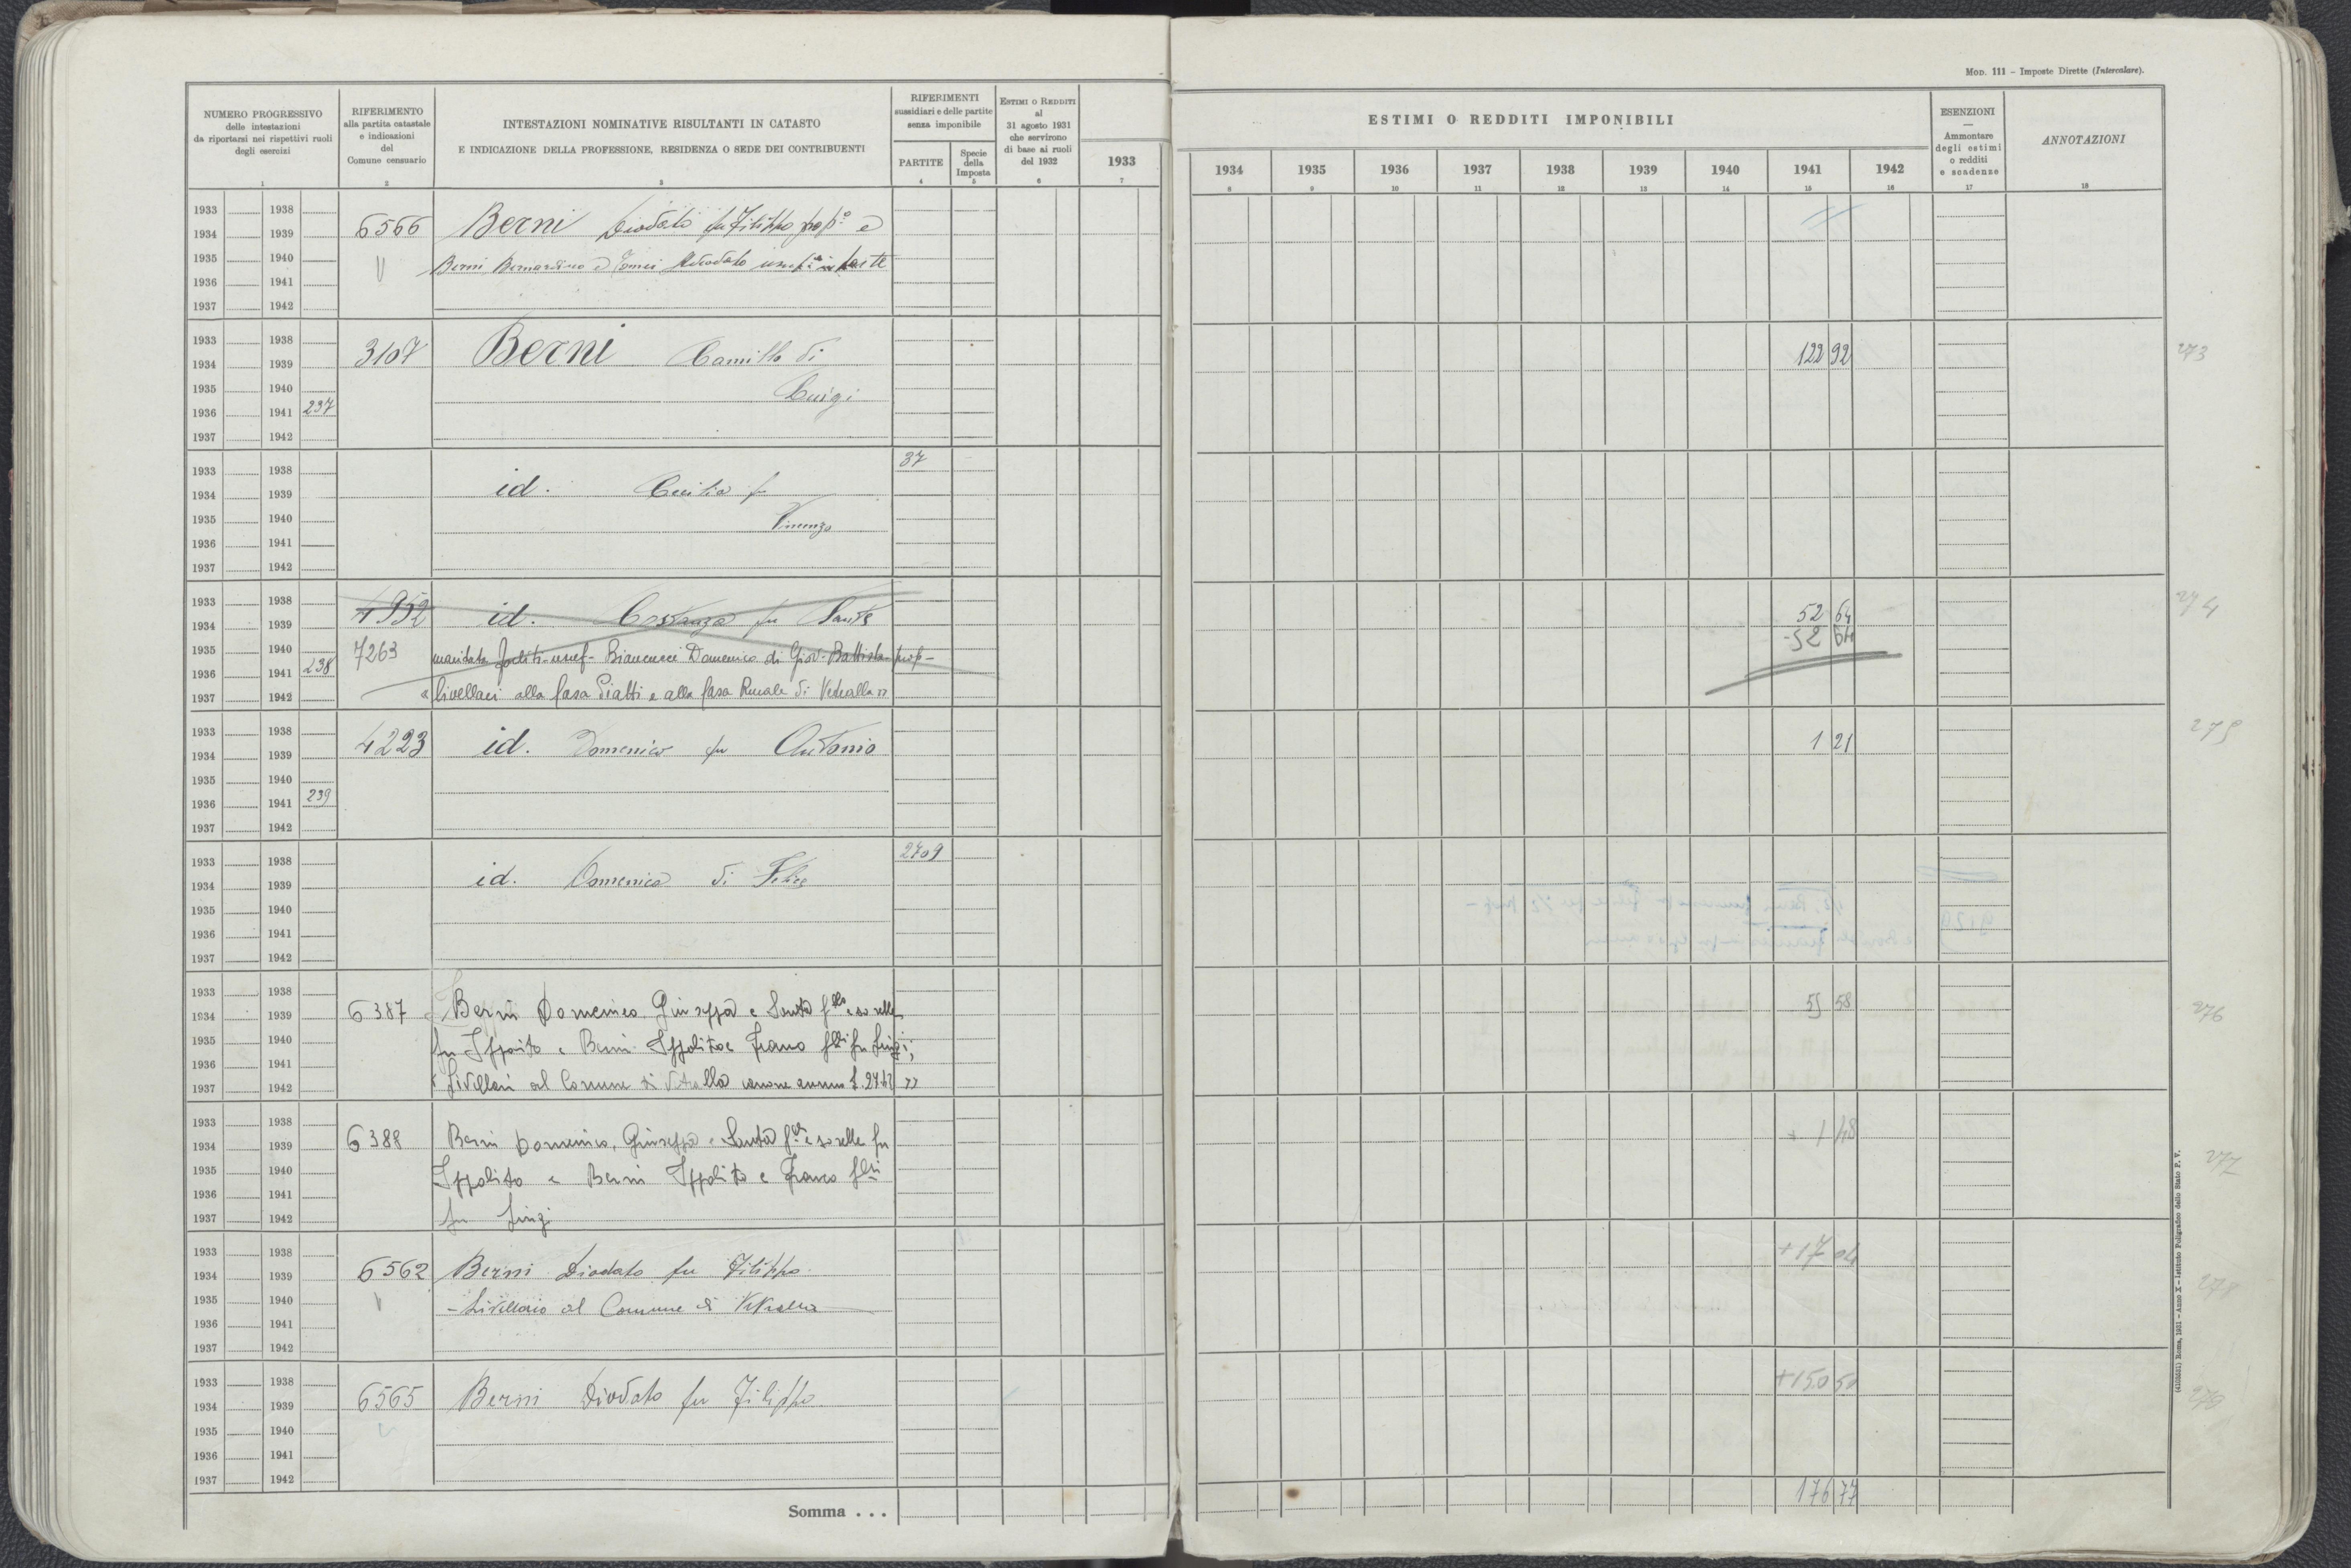 MOD. 111 – Imposte Dirette (Intercalare).
NUMERO PROGRESSIVO
delle intestazioni
da riportarsi nei rispettivi ruoli
degli esercizi
1
RIFERIMENTO
alla partita catastale
e indicazioni
del
Comune censuario
2
INTESTAZIONI NOMINATIVE RISULTANTI IN CATASTO
E INDICAZIONE DELLA PROFESSIONE, RESIDENZA O SEDE DEI CONTRIBUENTI
3
RIFERIMENTI
sussidiari e delle partite
senza imponibile
PARTITE
4
Specie
della
Imposta
5
ESTIMI O REDDITI
al
31 agosto 1931
che servirono
di base ai ruoli
del 1932
6
1933
7
ESTIMI O REDDITI IMPONIBILI
1934 1935 1936 1937 1938 1939 1940 1941 1942
8 9 10 11 12 13 14 15 16
ESENZIONI
—
Ammontare
degli estimi
o redditi
e scadenze
17
ANNOTAZIONI
18
1933 1938
1934 1939 6566 Berni Diodato fu Filippo prop° e
1935 1940 Berni Bernardino e Tomei Adeodato usuf in parte
1936 1941
1937 1942
1933 1938
1934 1939 3107 Berni Camillo di 122 92 273
1935 1940 Luigi
1936 1941 237
1937 1942
1933 1938 37
1934 1939 id. Cecilia fu
1935 1940 Vincenzo
1936 1941
1937 1942
1933 1938 274
1934 1939 4952 id. Costanza fu Sante 52 64
1935 1940 7263 maritata usuf- Biancucci Domenico di Giov. Battista prop- -52 64
1936 1941 238
1937 1942 livellari alla Casa Piatti e alla Casa Rurale di Vetralla
1933 1938
1934 1939 4223 id. Domenico fu Antonio 1 21 275
1935 1940
1936 1941 239
1937 1942
1933 1938 2709
1934 1939 id. Domenica di Felice
1935 1940
1936 1941
1937 1942
1933 1938
1934 1939 6387 Berni Domenico, Giuseppa e Santa f.llo e sorelle 51 58 276
1935 1940 fu Ippolito e Berni Ippolito e Franco f.lli fu Luigi;
1936 1941
1937 1942 Livellari al Comune di Vetralla canone annuo £.
1933 1938
1934 1939 6388 Berni Domenico, Giuseppa e Santa f. e sorelle fu + 1 48
1935 1940 Ippolito e Berni Ippolito e Franco f.lli 277
1936 1941
1937 1942 fu Luigi
1933 1938 +17 04
1934 1939 6562 Berni Diodato fu Filippo 278
1935 1940 - Livellario al Comune di Vetralla
1936 1941
1937 1942
1933 1938 +150 50
1934 1939 6565 Berni Diodato fu Filippo
1935 1940
1936 1941
1937 1942
Somma . . . 176 77
(4103531) Roma, 1931 – Anno X – Istituto Poligrafico dello Stato P. V.